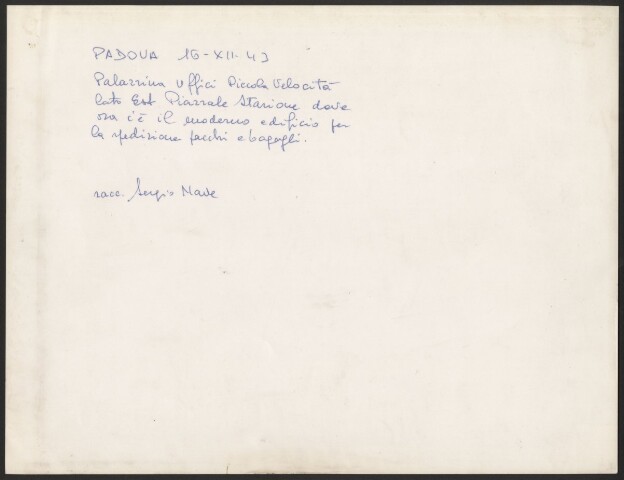 PADOVA 16-XII-43
Palazzina Uffici Piccola Velocità
lato Est Piazzale Stazione dove
ora c'è il moderno edificio per
la spedizione pacchi e bagagli.
racc. Sergio Nave